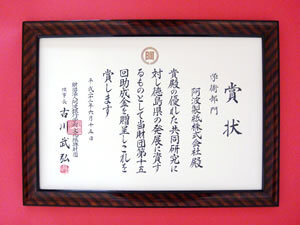 賞状
学術部門
阿波製紙株式会社殿
貴殿の優れた共同研究に
対し徳島県の発展に資す
るものとして当財団第十五
回助成金を贈呈しこれを
賞します
平成二十三年六月十五日
理事長 古川武弘